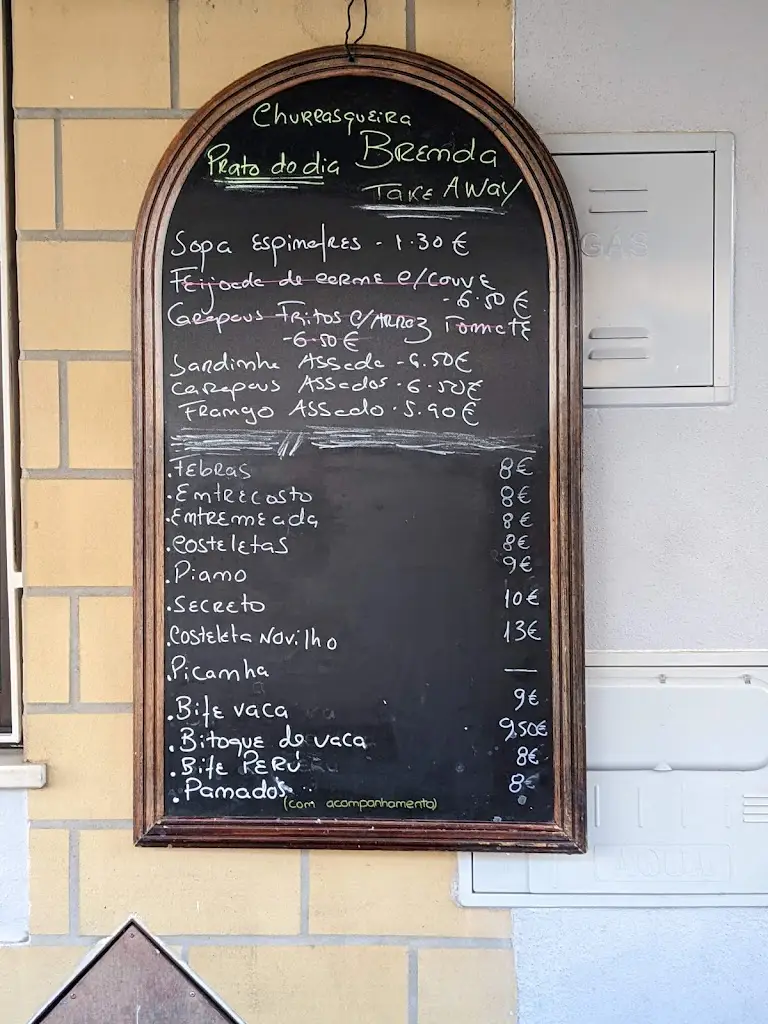 Churrasqueira
Prato do dia Brenda
Take Away
Sopa Espinafres - 1.30 €
Feijoada de carne c/couve
- 6.50 €
Carapaus Fritos c/Arroz Tomate
- 6.50 €
Sardinha Assada - 6.50 €
Carapaus Assados - 6.50 €
Frango Assado - 5.90 €
.Febras 8€
.Entrecosto 8€
.Entremeada 8€
.Costeletas 8€
.Piano 9€
.Secreto 10€
.Costeleta Novilho 13€
.Picanha —
.Bife vaca 9€
.Bitoque de vaca 9,50€
.Bife Perú 8€
.Panados 8€
(com acompanhamento)
GÁS